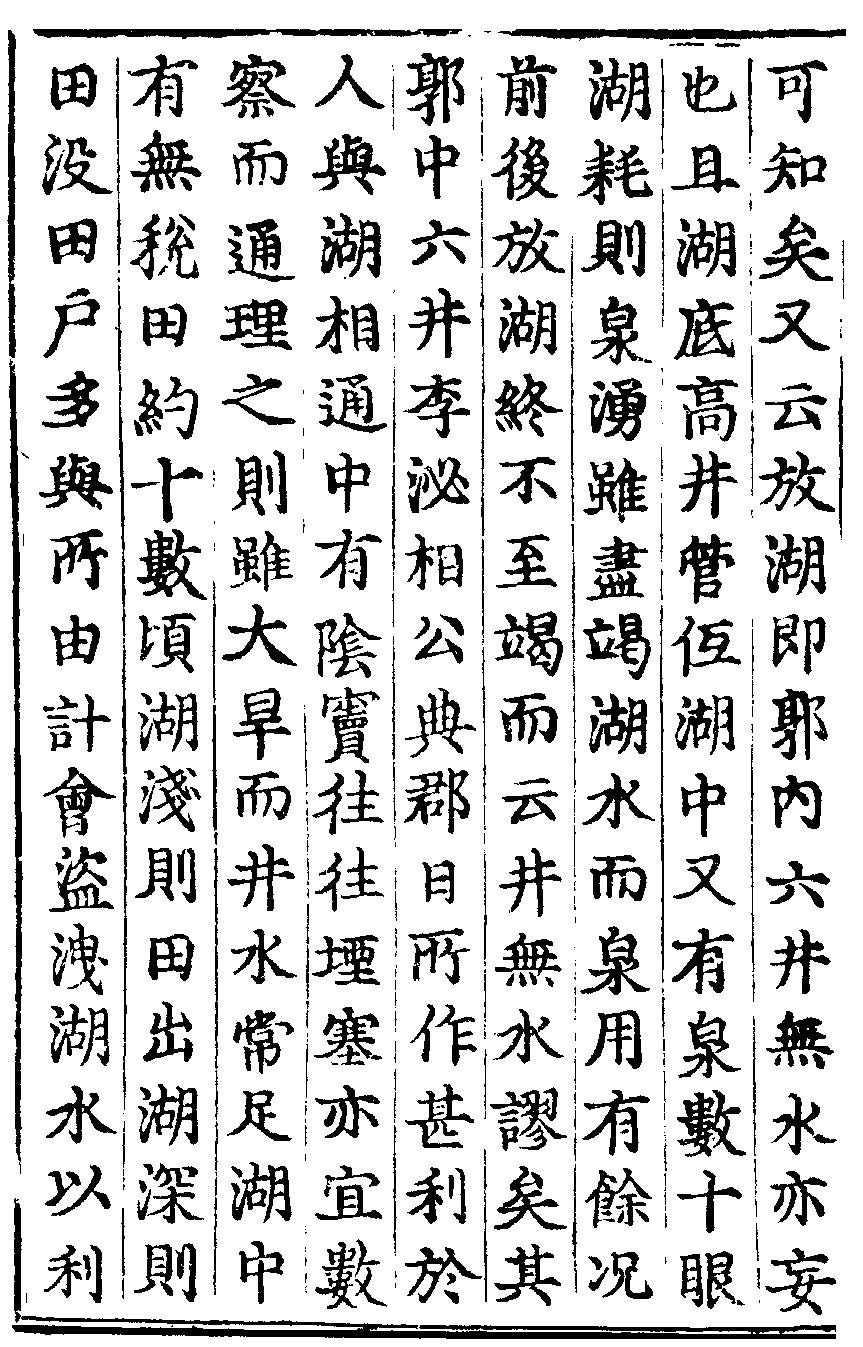 可知矣又云放湖即郭内六井無水亦妄
也且湖底高井管伍湖中又有泉數十眼
湖耗則泉湧雖盡竭湖水而泉用有餘况
前後放湖終不至竭而云井無水謬矣其
郭中六井李泌相公典郡日所作甚利於
人與湖相通中有陰竇往往堙塞亦宜數
察而通理之則雖大旱而井水常足湖中
有無税田約十數頃湖淺則田出湖深則
田没田户多與所由計會盜洩湖水以利